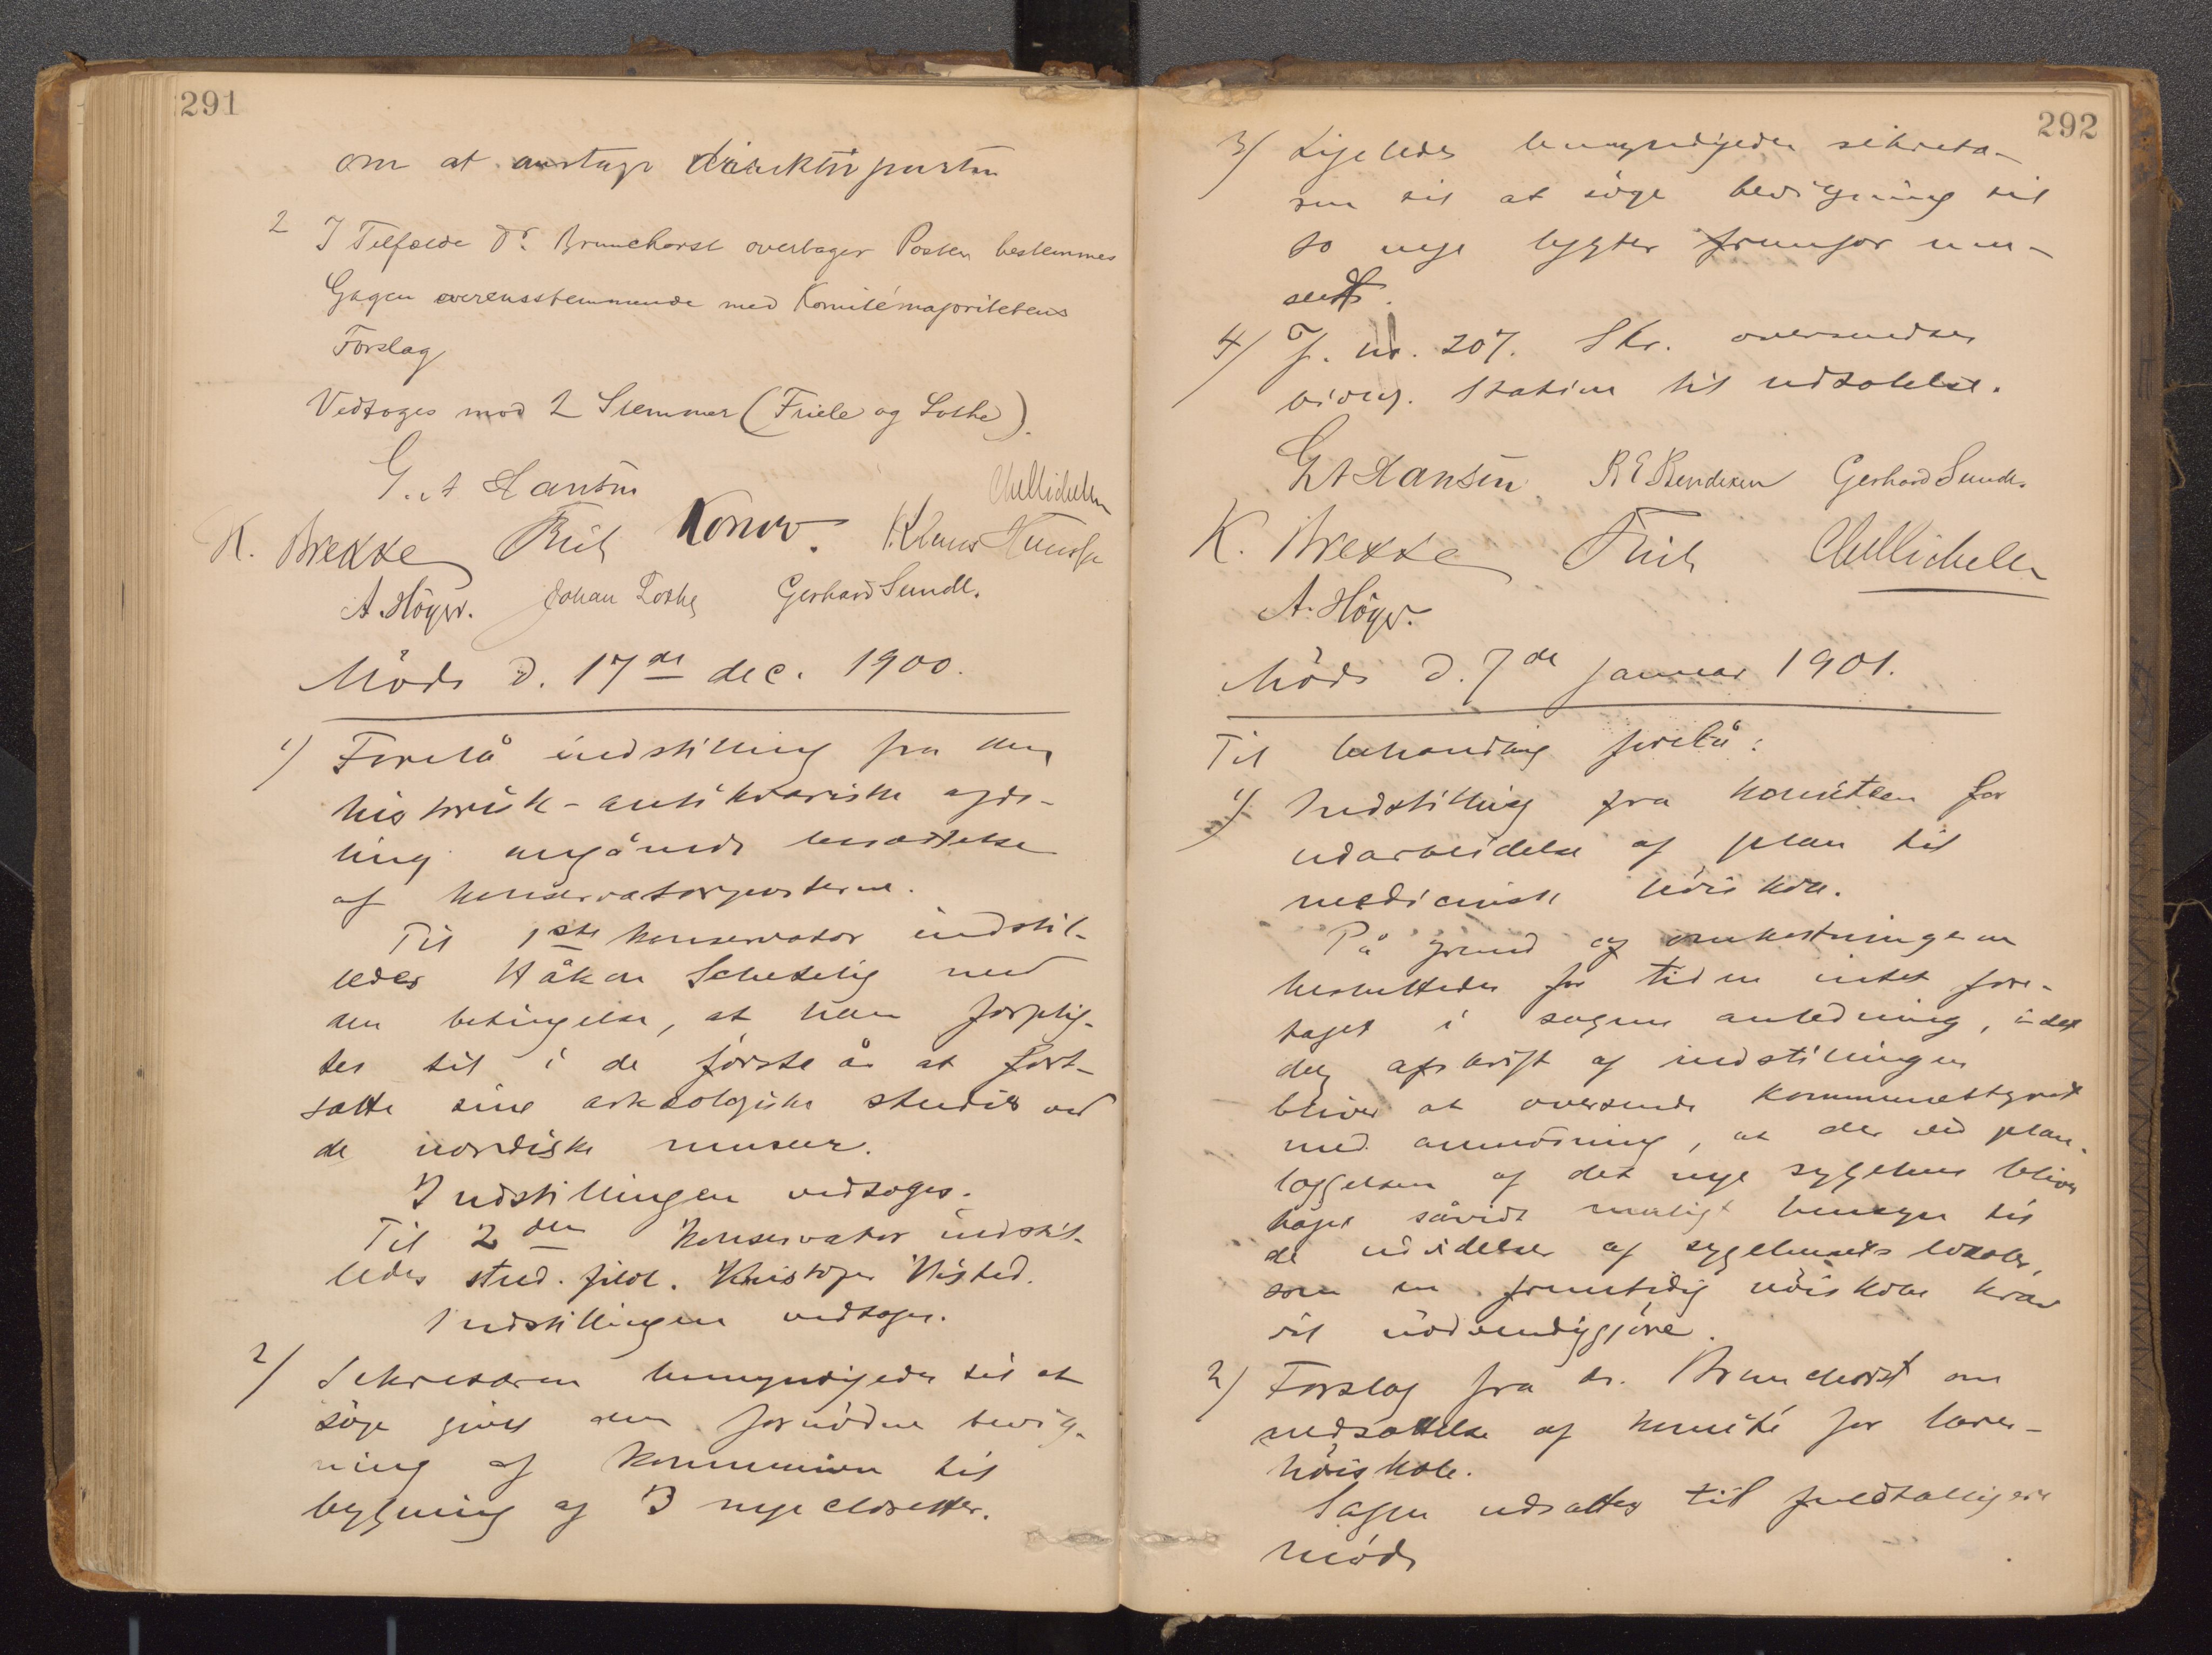 291
om at modtage direktørposten
2 I Tilfælde Dr. Brunchorst overtager Posten bestemmes
Gagen overensstemmende med Komitémajoritetens
Forslag
Vedtoges mod 2 Stemmer (Friele og Lothe).
G. A Hansen
K. Brekke Friele Konow. Klaus Hanssen
Chr Michelsen
A. Höyer. Johan Lothe Gerhard Sundt.
Möde d. 17de dec. 1900.
1) Forelå indstilling fra den
historisk-antikvariske afde-
ling angående besættelse
af konservatorposterne.
Til 1ste konservator indstil-
ledes Håkon Schetelig med
den betingelse, at han forplig-
tes til i de förste år at fort-
sætte sine arkæologiske studier ved
de nordiske museer.
Indstillingen vedtoges.
Til 2den konservator indstil-
ledes stud. filol. Kristofer Visted.
Indstillingen vedtoges.
2) Sekretæren bemyndigedes til at
söge givet den fornödne bevilg-
ning af kommunen til
bygning af 3 nye closetter.
292
3) Ligeledes bemyndigedes sekretæ-
ren til at söge bevilgning til
to nye lygter fremfor mu-
seet.
4) J. nr. 207. Skr. oversendes
biolog. station til udtalelse.
G A Hansen R E Bendixen Gerhard Sundt.
K. Brekke Friele Chr Michelsen
A. Höyer.
Möde d. 7de januar 1901.
Til behandling forelå:
1) Indstilling fra komiteen for
udarbeidelse af plan til
medicinsk höiskole.
På grund af omkostningerne
besluttedes for tiden intet fore-
taget i sagens anledning, idet
dog afskrift af indstillingen
bliver at oversende kommunestyret
med anmodning, at der ved plan-
læggelsen af det nye sygehus bliver
taget såvidt muligt hensyn til
de udvidelser af sygehusets lokaler,
som en fremtidig höiskoles krav
vil nödvendiggjöre.
2) Forslag fra dr. Brunchorst om
nedsættelse af komité for lærer-
höiskole.
Sagen udsattes til fuldtalligere
möde